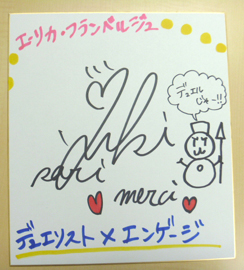 エリカ・フランベルジュ
デュエル
じゃー!!
merci
デュエリスト×エンゲージ